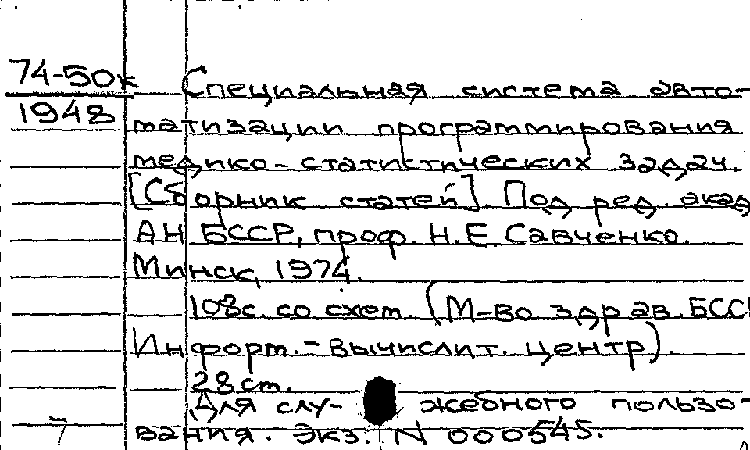 74-50к
1948
Специальная система авто-
матизации программирования
медико-статистических задач.
[Сборник статей]. Под ред. акад.
АН БССР, проф. Н.Е. Савченко.
Минск, 1974.
108с. со схем. (М-во здрав. БССР
Информ.-вычислит. центр).
28 см.
Для слу- жебного пользо-
вания. Экз. N 000545.